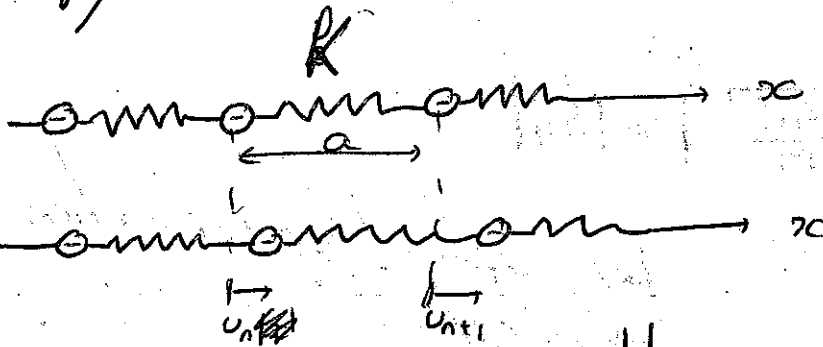 K
x
a
x
u_n u_{n+1}